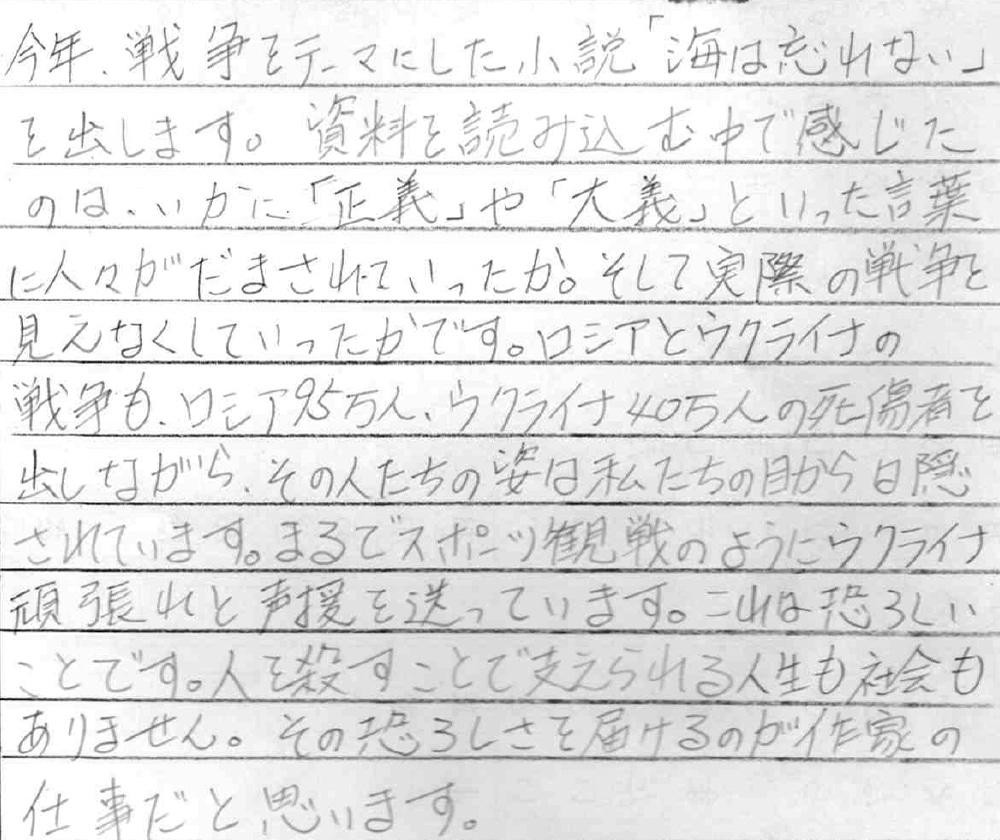 今年、戦争をテーマにした小説「海は忘れない」
を出します。資料を読み込む中で感じた
のは、いかに「正義」や「大義」といった言葉
に人々がだまされていったか。そして実際の戦争を
見えなくしていったかです。ロシアとウクライナの
戦争も、ロシア95万人、ウクライナ40万人の死傷者を
出しながら、その人たちの姿は私たちの目から目隠
されています。まるでスポーツ観戦のようにウクライナ
頑張れと声援を送っています。これは恐ろしい
ことです。人を殺すことで支えられる人生も社会も
ありません。その恐ろしさを届けるのが作家の
仕事だと思います。